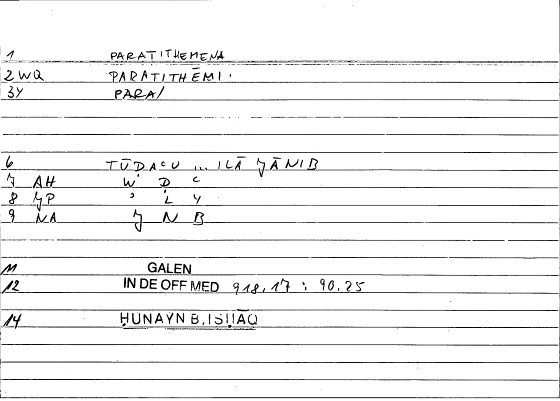 1 PARATITHEMENA
2 WQ PARATITHĒMI.
3Y PARA/
6 TŪDAʿU ... ILĀ ǦĀNIB
7 AH W D ʿ
8 ǦP ʾ L Y
9 NA Ǧ N B
11 GALEN
12 IN DE OFF MED 918,17 : 90.25
14 ḤUNAYN B. ISḤĀQ